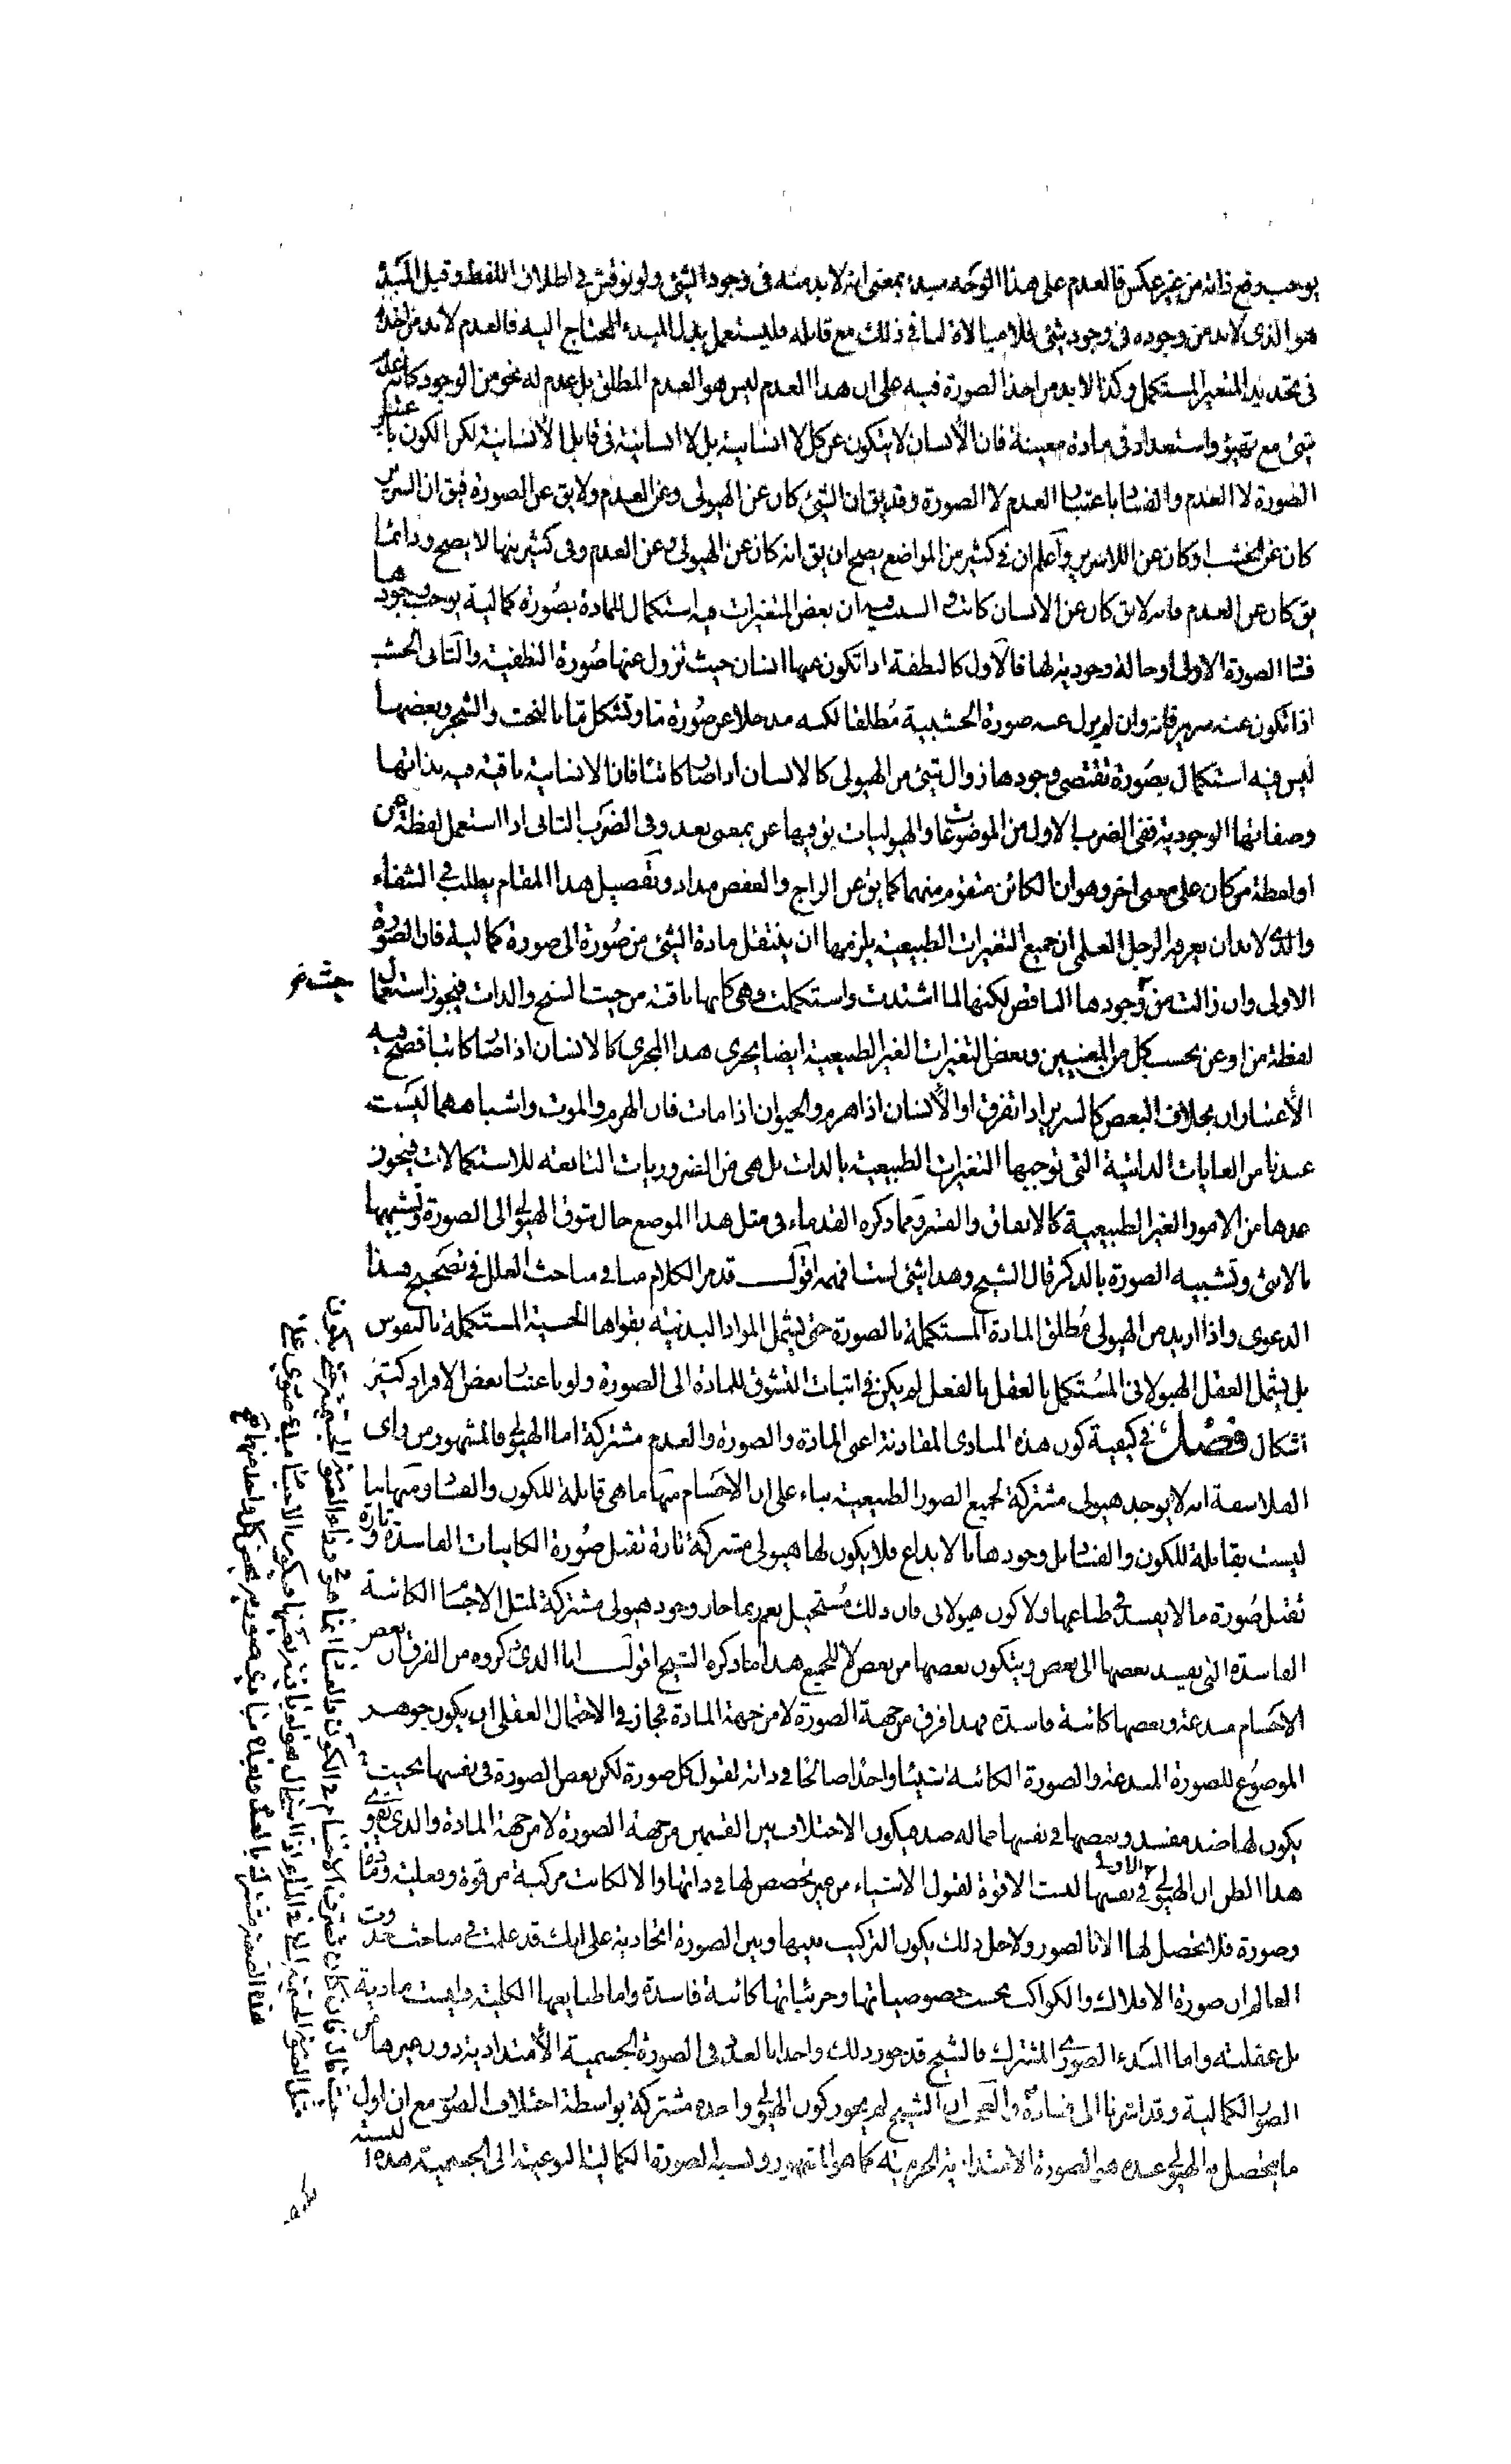 يوجب رفع ذاته من غير عكس فالعدم على هذا الوجه مبدء بمعنى انه لا بد منه فى وجود الشئ ولو نوقش فى اطلاق اللفظ وقيل المبدء
هو الذى لا بد من وجوده فى وجود شئ فلا مبالاة لنا فى ذلك مع قائله فليستعمل بدل المبدء المحتاج اليه فالعدم لا بد من اخذه
فى تحديد المتغير المستكمل وكذا لا بد من اخذ الصورة فيه على ان هذا العدم ليس هو العدم المطلق بل عدم له نحو من الوجود كانه عدم
شئ مع تهيؤ واستعداد فى مادة معينة فان الانسان لا يتكون عن كل لا انسانية بل لا انسانية فى قابل الانسانية لكن الكون باعتبار
الصورة لا العدم والفساد باعتبار العدم لا الصورة وقد يق ان الشئ كان عن الهيولى وعن العدم ولا يق عن الصورة فيق ان السرير
كان عن الخشب او كان عن اللاسرير واعلم ان فى كثير من المواضع يصح ان يق انه كان عن الهيولى وعن العدم وفى كثير منها لا يصح ودائما
يق كان عن العدم فانه لا يق كان عن الانسان كاتب والسبب فيه ان بعض المتغيرات فيه استكمال للمادة بصورة كمالية يوجب وجودها
فساد الصورة الاولى او حالة وجودية لها فالاول كالنطفة اذا تكون عنها انسان حيث تزول عنها صورة النطفية والثانى الخشب
اذا تكون عنه سرير فانه وان لم يزل عنه صورة الخشبية مطلقا لكنه قد خلا عن صورة ما وتشكل ما بالنحت والنجر وبعضها
ليس فيه استكمال بصورة تقتضى وجودها زوال شئ من الهيولى كالانسان اذا صار كاتبا فان الانسانية باقية فيه بذاتها
وصفاتها الوجودية ففى الضرب الاول من الموضوعات والهيوليات يق فيها عن بمعنى بعد وفى الضرب الثانى اذا استعمل لفظة عن
او لفظة من كان على معنى اخر وهو ان الكائن متقوم منهما كما يق عن الزاج والعفص مداد وتفصيل هذا المقام يطلب فى الشفاء
والذى لا بد ان يعرفه الرجل العلمى ان جميع التغيرات الطبيعية يلزمها ان ينتقل مادة الشئ من صورة الى صورة كمالية فان الصورة
الاولى وان زالت من وجودها الناقص لكنها لما اشتدت واستكملت وهى كانها باقية من حيث السنخ والذات فيجوز استعمال
لفظة من او عن بحسب كل من المعنيين وبعض التغيرات الغير الطبيعية ايضا يجرى هذا المجرى كالانسان اذا صار كاتبا فصح فيه
الاعتباران بخلاف البعض كالسرير اذا تفرق او الانسان اذا هرم والحيوان اذا مات فان الهرم والموت واشباههما ليست
عندنا من الغايات الذاتية التى توجبها التغيرات الطبيعية بالذات بل هى من الضروريات التابعة للاستكمالات فيجوز
عدها من الامور الغير الطبيعية كالاتفاق والقسر ومما ذكره القدماء فى مثل هذا الموضع حال شوق الهيولى الى الصورة وتشبيهها
بالانثى وتشبيه الصورة بالذكر قال الشيخ وهذا شئ لست افهمه اقول قد مر الكلام منا فى مباحث العلل فى تصحيح هذا
الدعوى واذا اريد من الهيولى مطلق المادة المستكملة بالصورة حتى يشمل المواد البدنية بقواها الحسية المستكملة بالنفوس
بل يشمل العقل الهيولانى المستكمل بالعقل بالفعل لم يكن فى اثبات التشوق للمادة الى الصورة ولو باعتبار بعض الافراد كثير
اشكال فصل فى كيفية كون هذه المبادى المقارنة اعنى المادة والصورة والعدم مشتركة اما الهيولى فالمشهور من راى
الفلاسفة انه لا يوجد هيولى مشتركة لجميع الصور الطبيعية بناء على ان الاجسام منها ما هى قابلة للكون والفساد ومنها ما
ليست بقابلة للكون والفساد بل وجودها بالابداع فلا يكون لها هيولى مشتركة تارة تقبل صورة الكائنات الفاسدة وتارة
تقبل صورة ما لا يفسد فى طباعها ولا كون هيولانى فان ذلك مستحيل نعم ربما جاز وجود هيولى مشتركة لمثل الاجسام الكائنة
الفاسدة التى يفسد بعضها الى بعض ويتكون بعضها من بعض لا للجميع هذا ما ذكره الشيخ اقول اما الذى ذكروه من الفرق بان بعض
الاجسام مبدعة وبعضها كائنة فاسدة فهذا فرق من جهة الصورة لا من جهة المادة فجاز فى الاحتمال العقلى ان يكون جوهر
الموضوع للصورة المبدعة والصورة الكائنة شيئا واحدا صالحا فى ذاته لقبول كل صورة لكن بعض الصورة فى نفسها بحيث
يكون لها ضد مفسد وبعضها فى نفسها مما له ضد فيكون الاختلاف بين القسمين من جهة الصورة لا من جهة المادة والذى يقوى
هذا الظن ان الهيولى الاولى فى نفسها ليست الا قوة لقبول الاشياء من غير تخصص لها فى ذاتها والا لكانت مركبة من قوة وفعلية ومادة
وصورة فلا تحصل لها الا بالصور ولاجل ذلك يكون التركيب بينها وبين الصورة اتحادية على انك قد علمت فى مباحث حدوث
العالم ان صورة الافلاك والكواكب بحسب خصوصياتها وجزئياتها كائنة فاسدة واما طبايعها الكلية فليست مادية
بل عقلية واما المبدء الصورى المشترك فالشيخ قد جوز ذلك واحدا بالعدد فى الصورة الجسمية الامتدادية دون غيرها من
الصور الكمالية وقد اشرنا الى فساده والعجب ان الشيخ لم يجوز كون الهيولى واحدة مشتركة بواسطة اختلاف الصور مع ان اول
ما يتحصل به الهيولى عنده هى الصورة الامتدادية الجرمية كما هو المشهور ونسبة الصورة الكمالية النوعية الى الجسمية هذه